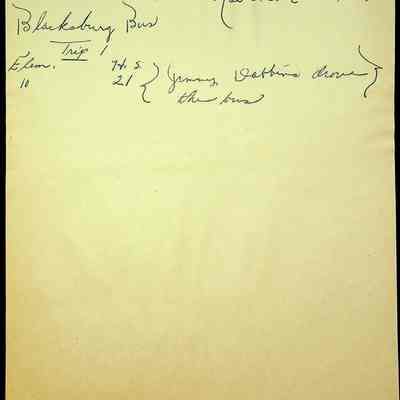 Blacksburg Bus
Trip 1
Elem. H.S. { Jimmy Dobbins drove }
10 21 the bus